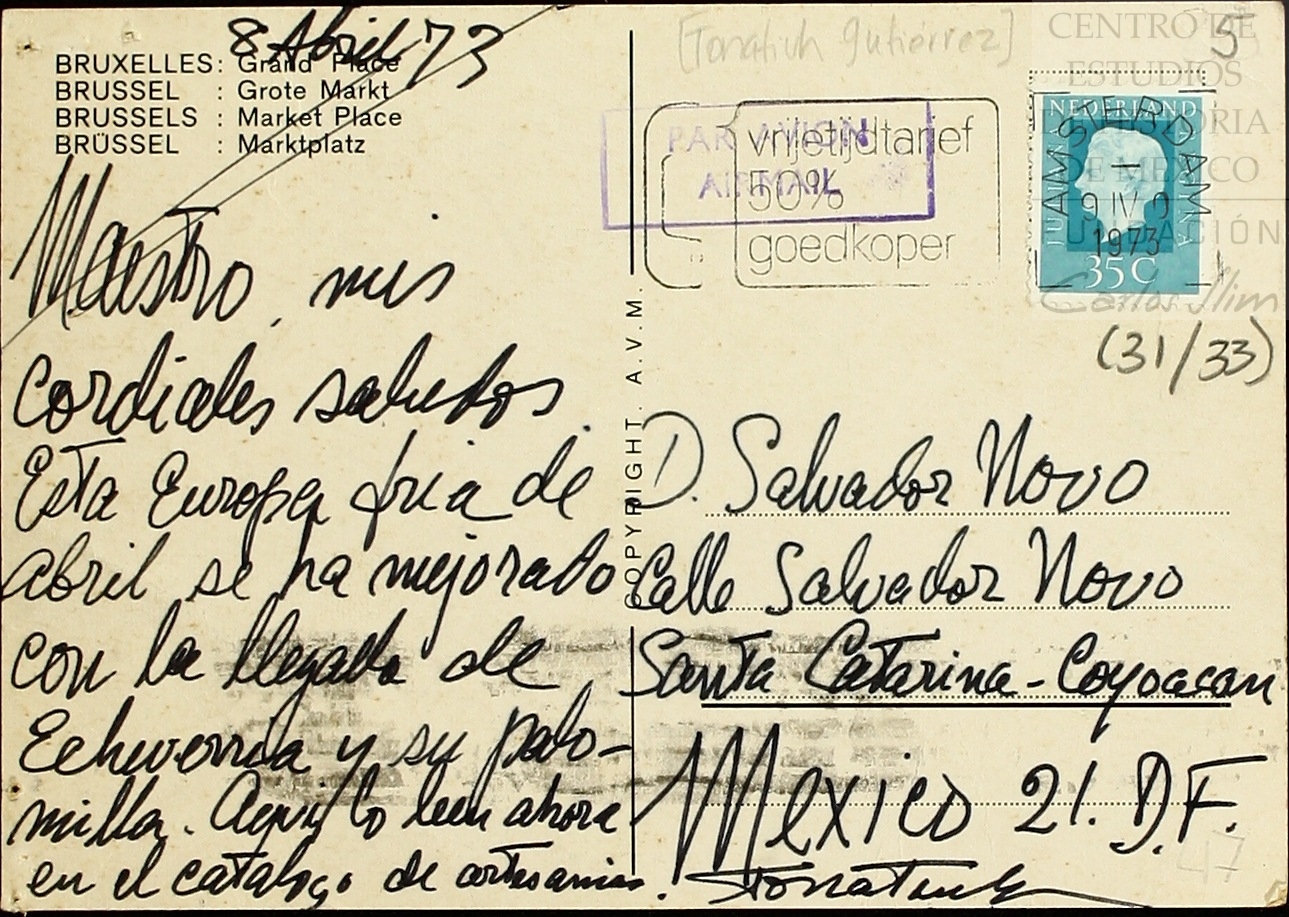 8 Abril 73
BRUXELLES: Grand Place
BRUSSEL : Grote Markt
BRUSSELS : Market Place
BRÜSSEL : Marktplatz
Maestro, mis
cordiales saludos
Esta Europa fria de
abril se ha mejorado
con la llegada de
Echeverria y su palo-
milla. Aqui lo leen ahora
en el catalogo de artesanias.
Tonatiuh
COPYRIGHT. A.V.M.
[Tonatiuh Gutiérrez]
5
PAR AVION
AIR MAIL
vrijetijdtarief
50%
goedkoper
NEDERLAND
JULIANA REGINA
35 C
AMSTERDAM
9 IV 9
1973
CENTRO DE
ESTUDIOS
DE HISTORIA
DE MÉXICO
FUNDACIÓN
Carlos Slim
(31/33)
D. Salvador Novo
Calle Salvador Novo
Santa Catarina - Coyoacan
Mexico 21. D.F.
47